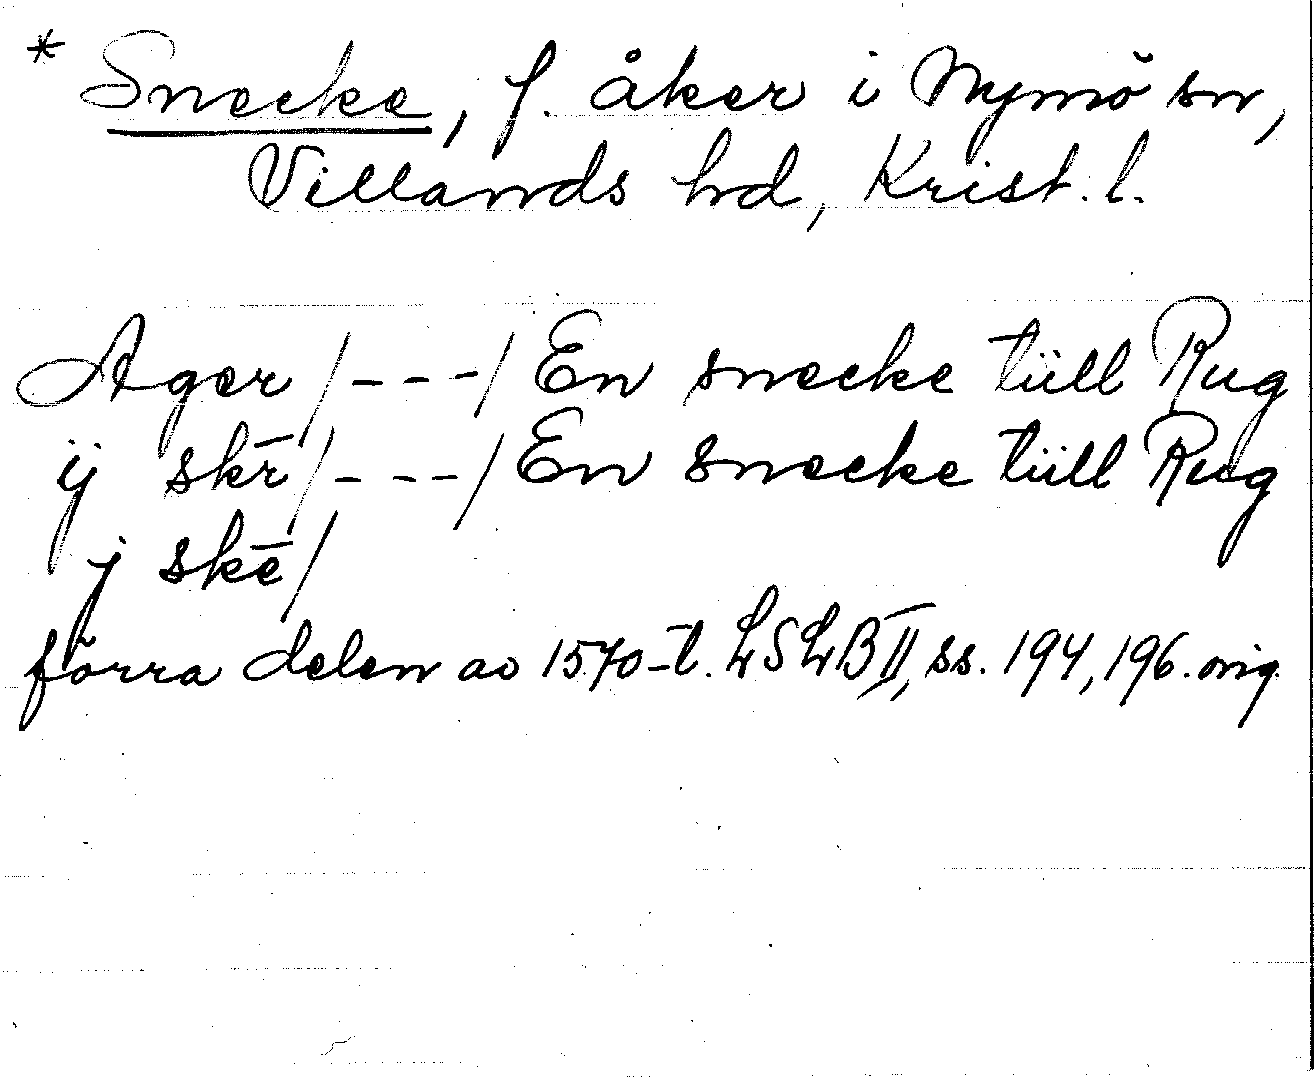 * Snecke, f. åker i Nymö sn,
Villands hd, Krist. l.
Ager /---/ En snecke tiill Rug
ij skr̄ /---/ En snecke tiill Rug
j skē/
förra delen av 1570-t. LSLB II, ss. 194, 196. orig.